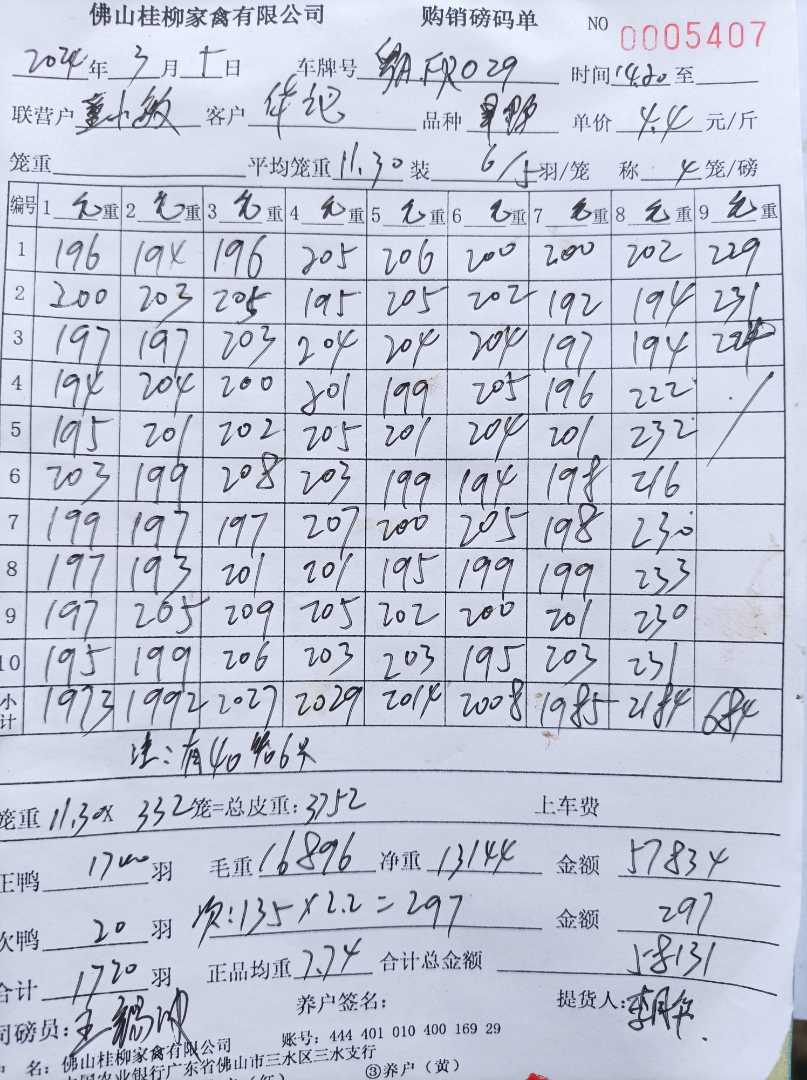 佛山桂柳家禽有限公司 购销磅码单 NO 0005407
2024年3月十日 车牌号 FR029 时间14.20至
联营户 董小敏 客户 华记 品种 单价 4.4 元/斤
笼重 平均笼重11.30 装 6/5 羽/笼 称 4 笼/磅
编号 1 毛重 2 毛重 3 毛重 4 毛重 5 毛重 6 毛重 7 毛重 8 毛重 9 毛重
1 196 194 196 205 206 200 200 202 229
2 200 203 205 195 205 202 192 194 231
3 197 197 203 204 204 204 197 194 224
4 194 204 200 201 199 205 196 222
5 195 201 202 205 201 204 201 232
6 203 199 208 203 199 194 198 216
7 199 197 197 207 200 205 198 230
8 197 193 201 201 195 199 199 233
9 197 205 209 205 202 200 201 230
10 195 199 206 203 203 195 203 231
小计 1973 1992 2027 2029 2014 2008 1985 2184 684
注:有40笼6只
笼重 11.30 x 332 笼=总皮重:3752 上车费
正鸭 1700 羽 毛重 16896 净重 13144 金额 57834
次鸭 20 羽 次:135×2.2=297 金额 297
合计 1720 羽 正品均重 7.74 合计总金额 58131
司磅员: 养户签名: 提货人:
户 名:佛山桂柳家禽有限公司 账号:444 401 010 400 169 29
中国农业银行广东省佛山市三水区三水支行
③养户(黄)